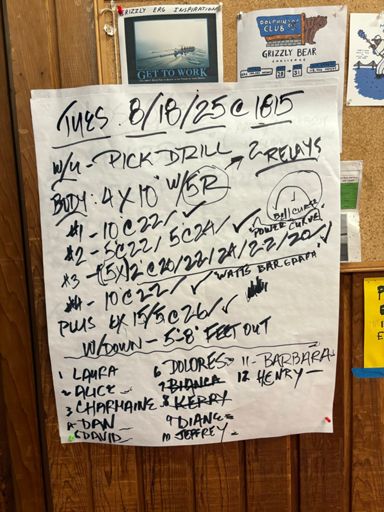 GRIZZLY ERG INSPIRATION
GET TO WORK
DOLPHIN
CLUB
GRIZZLY BEAR
CHALLENGE
TUES. 8/18/25 @ 1815
W/U - PICK DRILL → 2 RELAYS
BODY: 4 X 10' W/5'R
#1 - 10 @ 22/ ✓
BELL CURVE
#2 - 5 @ 22/ 5 @ 24/ ✓ "POWER CURVE"
#3 - (5X) 2' @ 20/22/24/22/20/ ✓
WATTS BAR GRAPH
#4 - 10 @ 22/ ✓
PLUS 4X 15/5 @ 26/ ✓
W/DOWN - 5-8' FEET OUT
1 LAURA
2 ALICE -
3 CHARMAINE
4 DAN -
5 DAVID
6 DOLORES -
7 BIANCA
8 KERRY
9 DIANE
10 JEFFREY -
11 - BARBARA
12. HENRY -